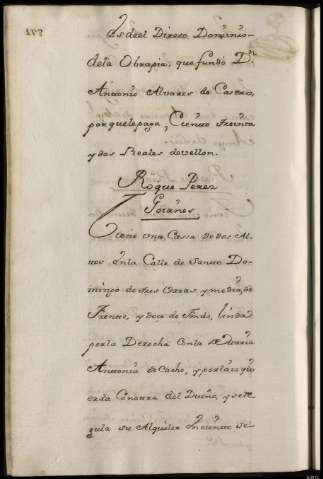 Es deel Directo Dominio
dela Obrapia, que fundo Dn
Antonio Alvares de Castro,
por que le paga, Ciento Treinta
y dos Reales de vellon.
Roque Perez
Goianes
Tiene una Cassa de dos Al
tos en la Calle de Santo Do-
mingo de tres Varas, y media de
Frente, y doce de Fondo, linda
por la Derecha con la de Maria
Antonia de Cacho, y por la izqui
erda Canonxa del Dueño, y se re
gula su Alquiler en ciento se-